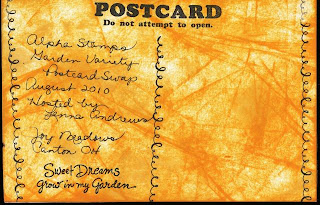 POSTCARD
Do not attempt to open.
Alpha Stamps
Garden Variety
Postcard Swap
August 2010
Hosted by
Jenna Andrews
Joy Meadows
Canton OH
Sweet Dreams
grow in my Garden